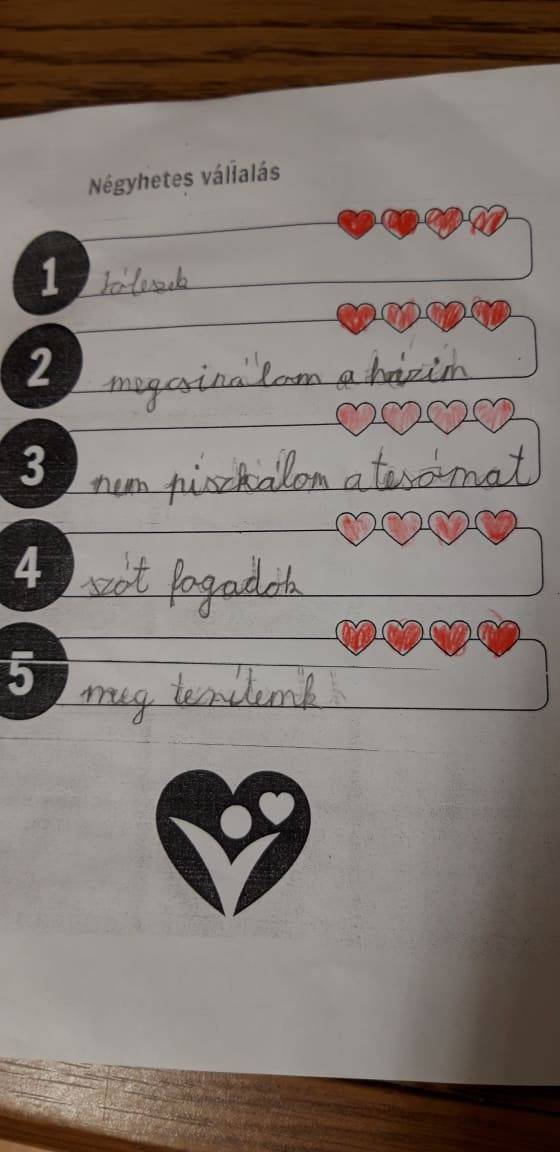 Négyhetes vállalás
1
2
megcsinálom a házim
3
nem piszkálom a tesómat
4
szót fogadok
5
meg